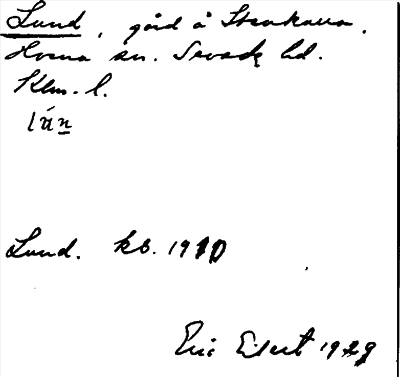 Lund, gård å Stenkulla.
Hvena sn. Sevede hd.
Klm. l.
lún
Lund. kb. 1910
Eric Elsert 1929